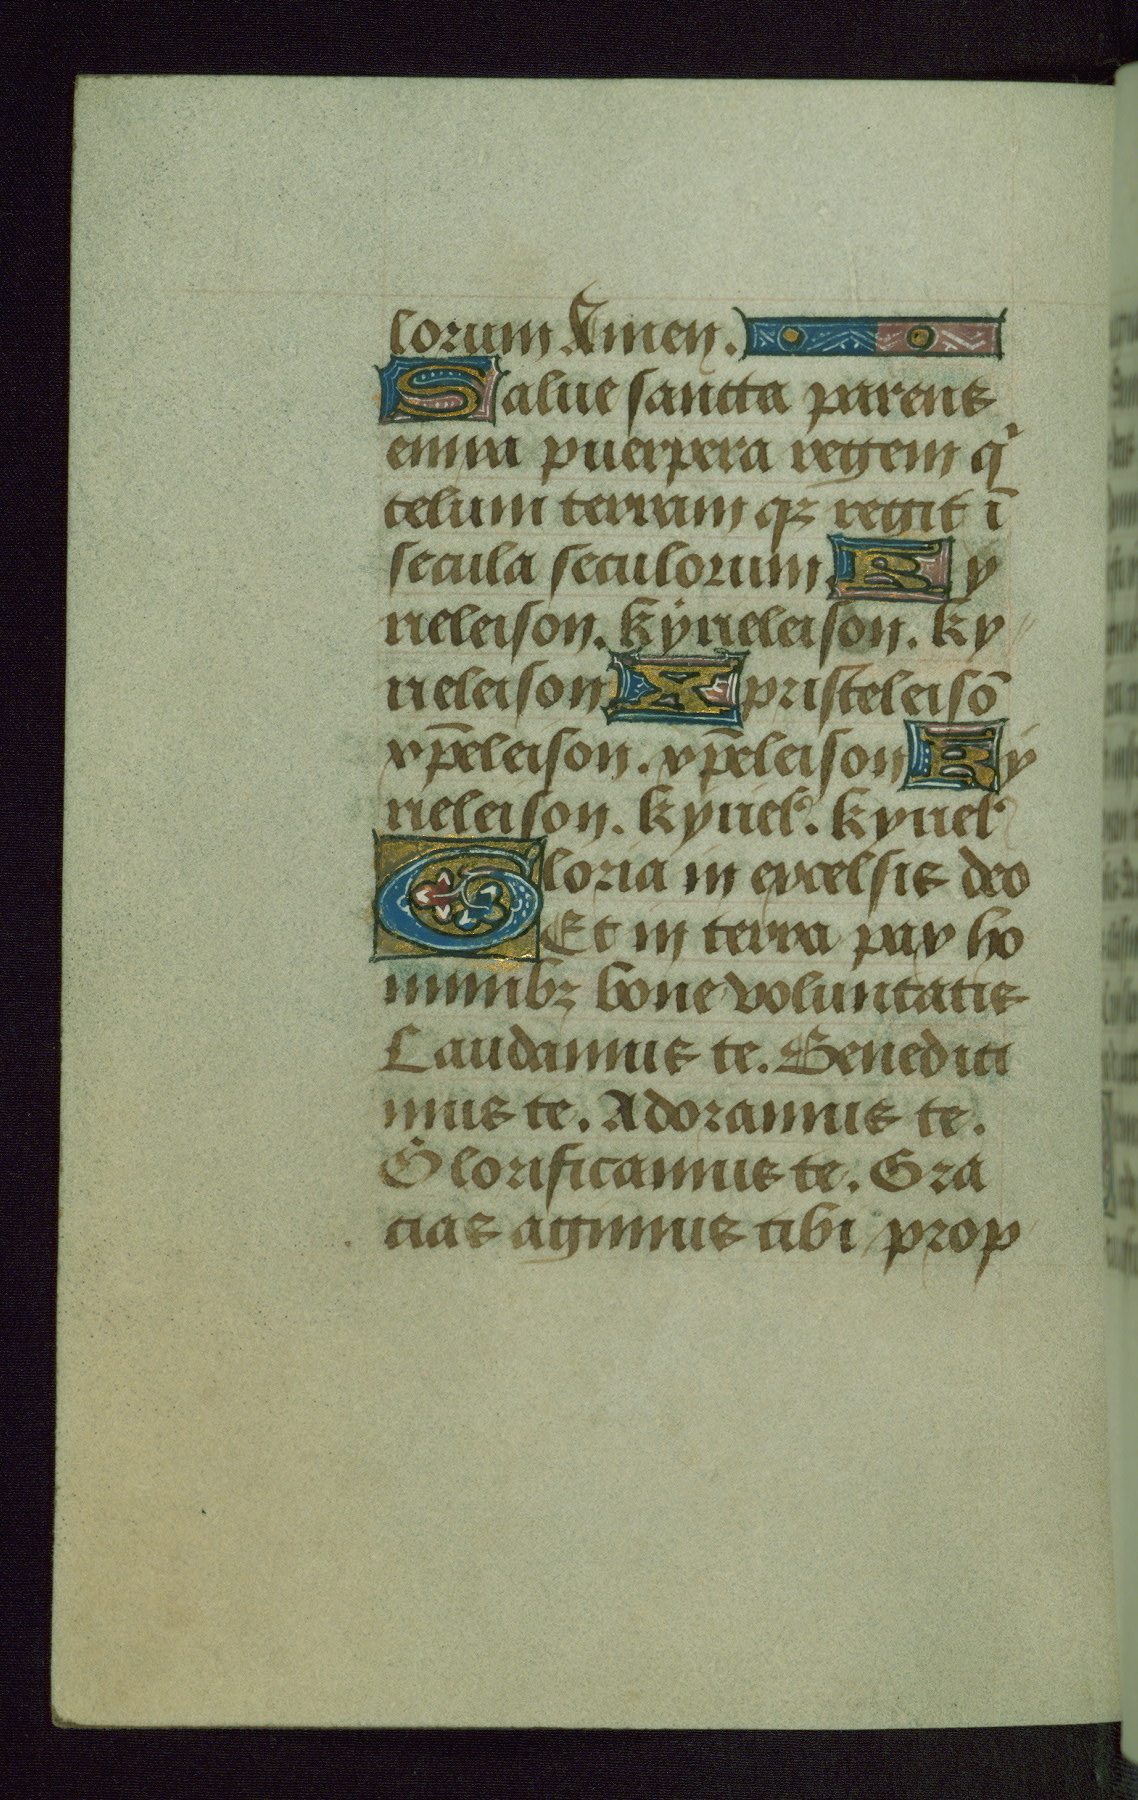 lorum Amen.
Salue sancta parens
enixa puerpera regem qͥ
celum terram qꝫ regit ī
secula seculorum Ky
rieleison. kyrieleison. ky
rieleison Xpristeleisō
xp̄eleison. xp̄eleison Ky
rieleison. kyriel᷒. kyriel᷒
Gloria in excelsis deo
Et in terra pax ho
minibꝫ bone voluntatis
Laudamus te. Benedici
mus te. Adoramus te.
Glorificamus te. Gra
cias agimus tibi prop